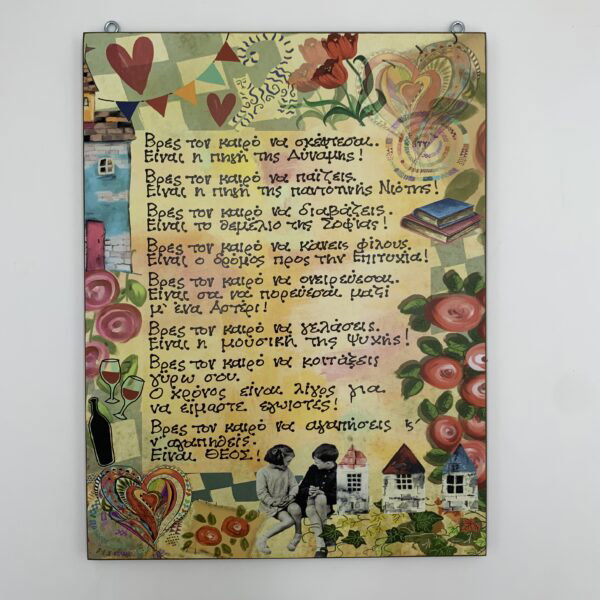 Βρες τον καιρό να σκέπτεσαι.
Είναι η πηγή της Δύναμης!
Βρες τον καιρό να παίζεις.
Είναι η πηγή της παντοτινής Νιότης!
Βρες τον καιρό να διαβάζεις.
Είναι το θεμέλιο της Σοφίας!
Βρες τον καιρό να κάνεις φίλους.
Είναι ο δρόμος προς την Επιτυχία!
Βρες τον καιρό να ονειρεύεσαι.
Είναι σα να πορεύεσαι μαζί
μ' ένα Αστέρι!
Βρες τον καιρό να γελάσεις.
Είναι η μουσική της Ψυχής!
Βρες τον καιρό να κοιτάξεις
γύρω σου.
Ο χρόνος είναι λίγος για
να είμαστε εγωιστές!
Βρες τον καιρό να αγαπήσεις ϗ
ν' αγαπηθείς.
Είναι ΘΕΟΣ!